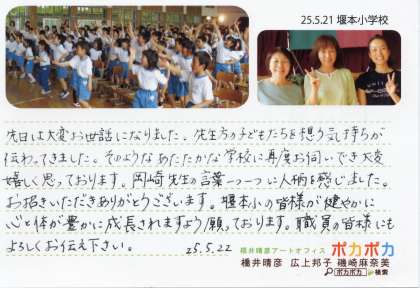 25.5.21 堰本小学校
先日は大変お世話になりました。先生方の子どもたちを想う気持ちが
伝わってきました。そのようなあたたかな学校に再度お伺いでき大変
嬉しく思っております。岡崎先生の言葉一つ一つに人柄を感じました。
お招きいただきありがとうございます。堰本小の皆様が健やかに
心と体が豊かに成長されますよう願っております。職員の皆様にも
よろしくお伝え下さい。 25.5.22
橋井晴彦アートオフィス ポカポカ
橋井晴彦 広上邦子 磯崎麻奈美
ポカポカ 検索